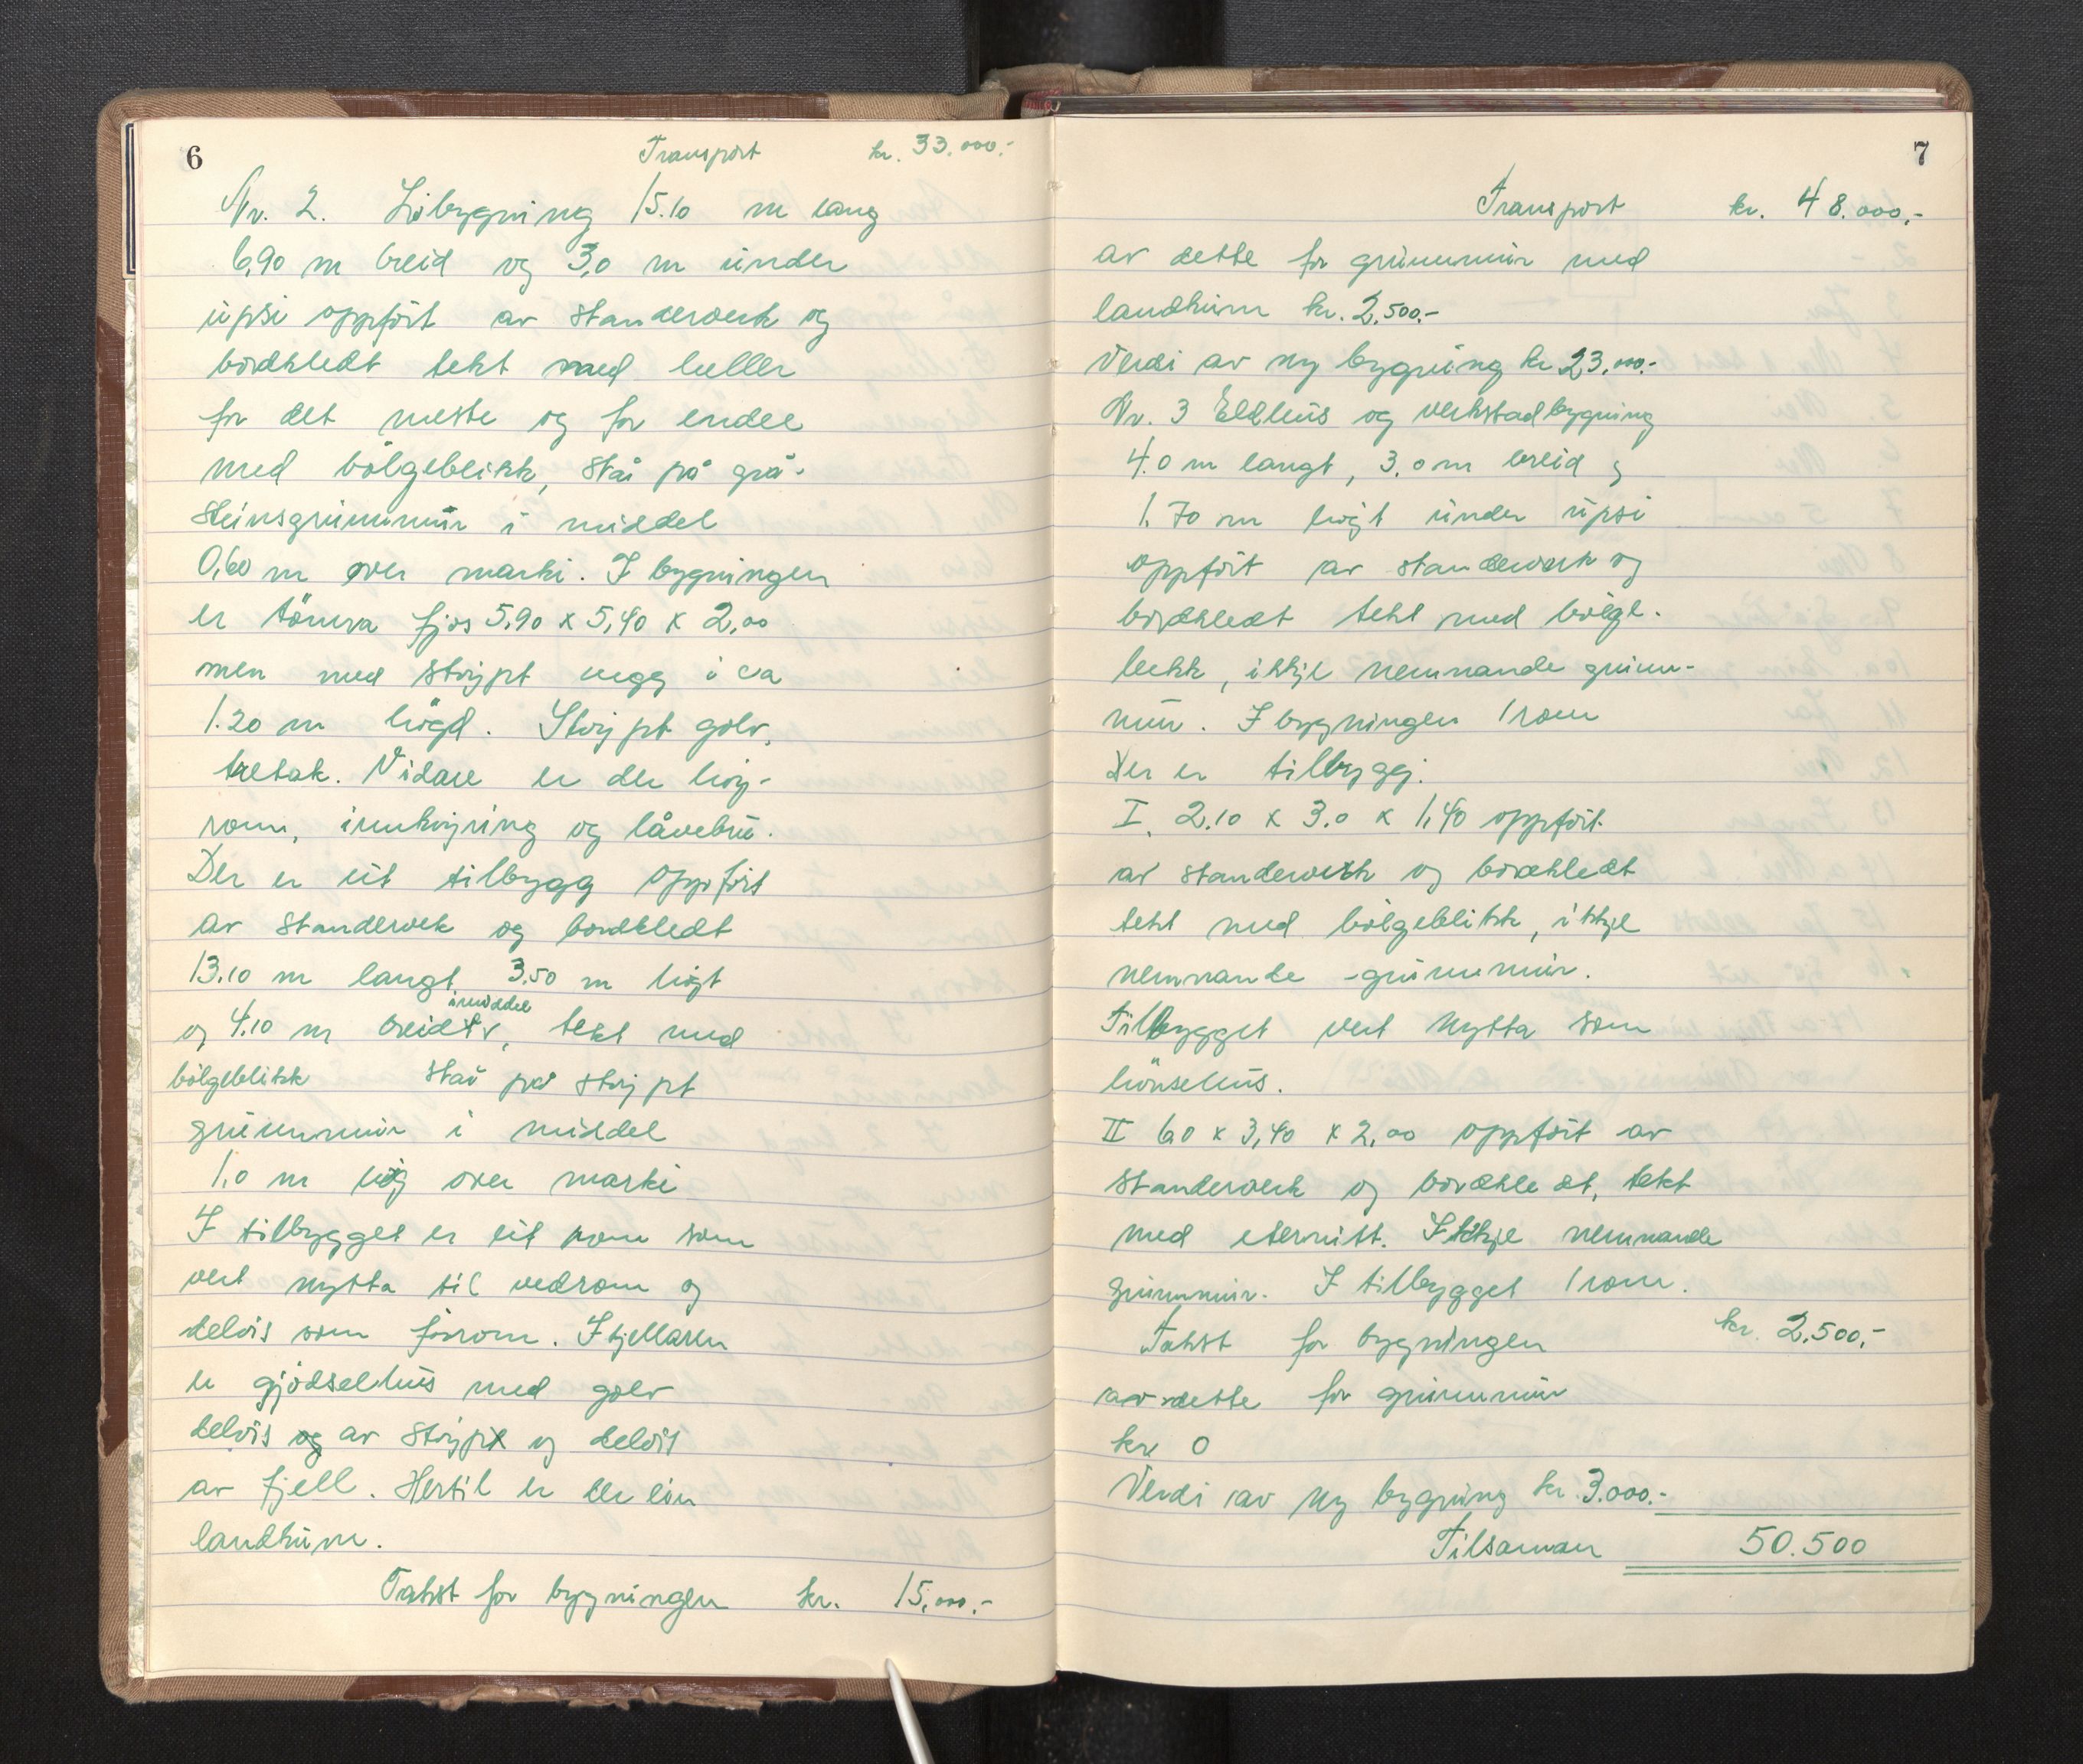 6
Transport kr. 33.000.-
Nr. 2. Löbygning 15.10 m lang
6,90 m breid og 3,0 m under
upsi oppfört av standerverk og
bordkledt tekt med heller
for det meste og for endel
med bölgeblikk, står på grå-
steinsgrunnmur i middel
0,60 m over marki. I bygningen
er tömra fjos 5,90 x 5,40 x 2,00
men med stöypt vegg i ca
1.20 m högd. Stöypt golv,
tretak. Vidare er der höy-
rom, innköyring og låvebru.
Der er eit tilbygg oppfört
av standerverk og bordkledt
13.10 m langt 3.50 m högt
i middel
og 4.10 m breidt, tekt med
bölgeblikk står på stöypt
grunnmur i middel
1,0 m hög over marki
I tilbygget er eit rom som
vert nytta til vedrom og
delvis som fôrrom. I kjellaren
er gjödselhus med golv
delvis og av stöypt og delvis
av fjell. Hertil er der ein
landkum.
Takst for bygningen kr. 15,000.-
7
Transport kr. 48.000,-
av dette for grunnmur med
landkum kr. 2,500.-
Verdi av ny bygning kr 23,000.-
Nr. 3 Eldhus og verkstadbygning
4.0 m langt, 3.0 m breid og
1.70 m högt under upsi
oppfört av standerverk og
bordkledt tekt med bölge-
blekk, ikkje nemnande grunn-
mur. I bygningen 1 rom
Der er tilbygg.
I. 2.10 x 3.0 x 1,40 oppfört
av standerverk og bordkledt
tekt med bölgeblikk, ikkje
nemnande grunnmur.
Tilbygget vert nytta som
hönsehus.
II 6.0 x 3,40 x 2,00 oppfört av
standerverk og bordkledt, tekt
med eternitt. Ikkje nemnande
grunnmur. I tilbygget 1 rom.
Takst for bygningen kr. 2,500,-
av dette for grunnmur
kr 0
Verdi av ny bygning kr. 3.000.-
Tilsaman 50.500